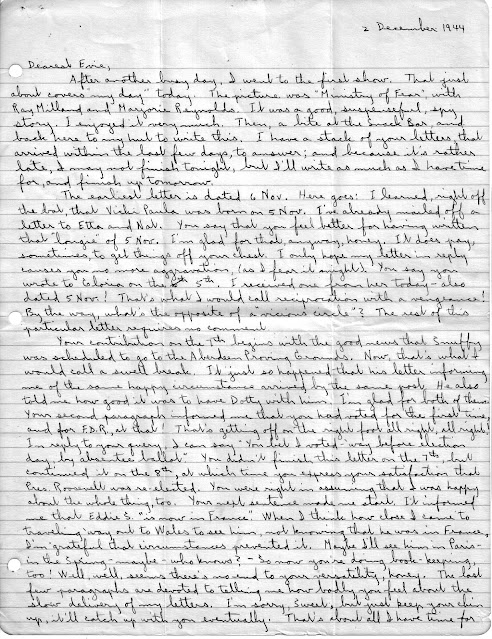 2 December 1944
Dearest Evie,
After another busy day, I went to the first show. That just
about covers "my day" today. The picture was "Ministry of Fear", with
Ray Milland and Marjorie Reynolds. It was a good, suspenseful, spy
story. I enjoyed it very much. Then, a bite at the Snack Bar, and
back here to my hut to write this. I have a stack of your letters, that
arrived within the last few days, to answer; and because it's rather
late, I may not finish tonight, but I'll write as much as I have time
for, and finish up tomorrow.
The earliest letter is dated 6 Nov. Here goes: I learned, right off
the bat, that Vicki Paula was born on 5 Nov. I've already mailed off a
letter to Etta and Nat. You say that you feel better for having written
that "longie" of 5 Nov. I'm glad for that, anyway, honey. It does pay,
sometimes to get things off your chest. I only hope my letter in reply
causes you no more aggravation, (as I fear it might). You say you
wrote to Gloria on the 5th. I received one from her today - also
dated 5 Nov! That's what I would call reciprocation with a vengeance!
By the way, what's the opposite of a "vicious circle"? The rest of this
particular letter requires no comment.
Your contribution on the 7th begins with the good news that Snuffy
was scheduled to go to the Aberdeen Proving Grounds. Now, that's what I
would call a swell break. It just so happened that his letter informing
me of the same happy circumstances arrived by the same post. He also
told me how good it was to have Dotty with him. I'm glad for both of them.
Your second paragraph informed me that you had voted for the first time,
and for F.D.R, at that! That's getting off on the right foot all right, all right!
In reply to your query, I can say "You bet I voted - way before election
day, by absentee ballot". You didn't finish this letter on the 7th, but
continued it on the 8th, at which time you express your satisfaction that
Pres. Roosevelt was re-elected. You were right in assuming that I was happy
about the whole thing, too. Your next sentence made me start. It informed
me that Eddie S. "is now in France." When I think how close I came to
traveling way out to Wales to see him, not knowing that he was in France,
I'm grateful that circumstances prevented it. Maybe I'll see him in Paris -
in the Spring - maybe - who knows? - So now you're doing book-keeping,
too! Well, well, seems there's no end to your versatility, honey. The last
few paragraphs are devoted to telling me how badly you feel about the
slow delivery of my letters. I'm sorry, Sweet, but just keep your chin
up, it'll catch up with you eventually. That's about all I have time for